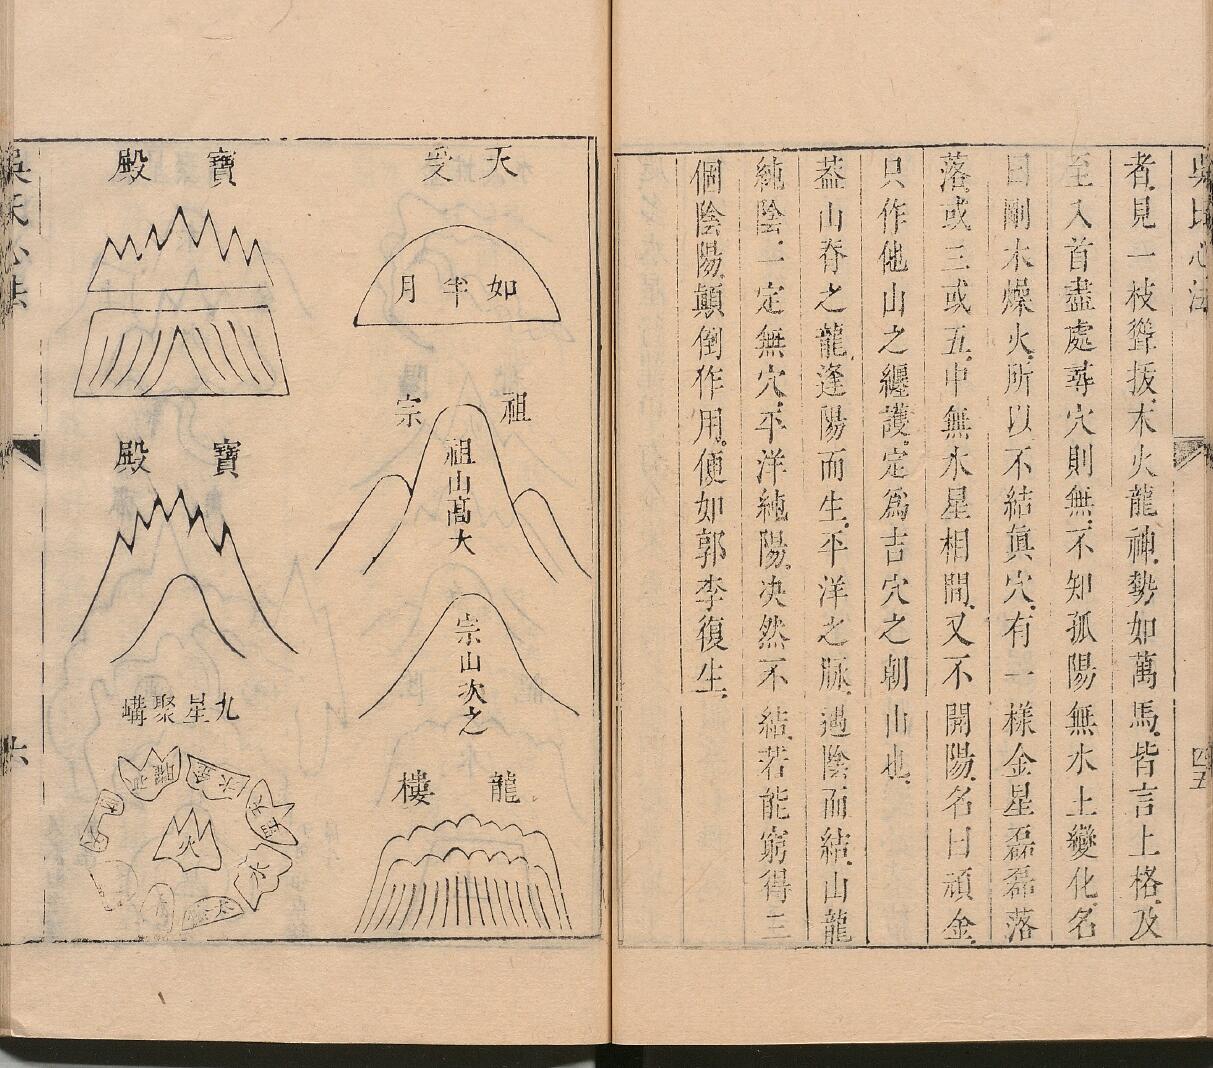 者見一枝聳拔木火龍神勢如萬馬皆言上格及
至入首盡處尋穴則無不知孤陽無水土變化名
曰剛木燥火所以不結眞穴有一樣金星磊磊落
落或三或五中無水星相間又不開陽名曰頑金
只作他山之纏護定爲吉穴之朝山也
葢山脊之龍逢陽而生平洋之脉遇陰而結山龍
純陰一定無穴平洋純陽决然不結若能窮得三
個陰陽顛倒作用便如郭李復生
天受
如半月
祖宗
祖山髙大
宗山次之
龍樓
寶殿
寶殿
九星聚講
火
水
六